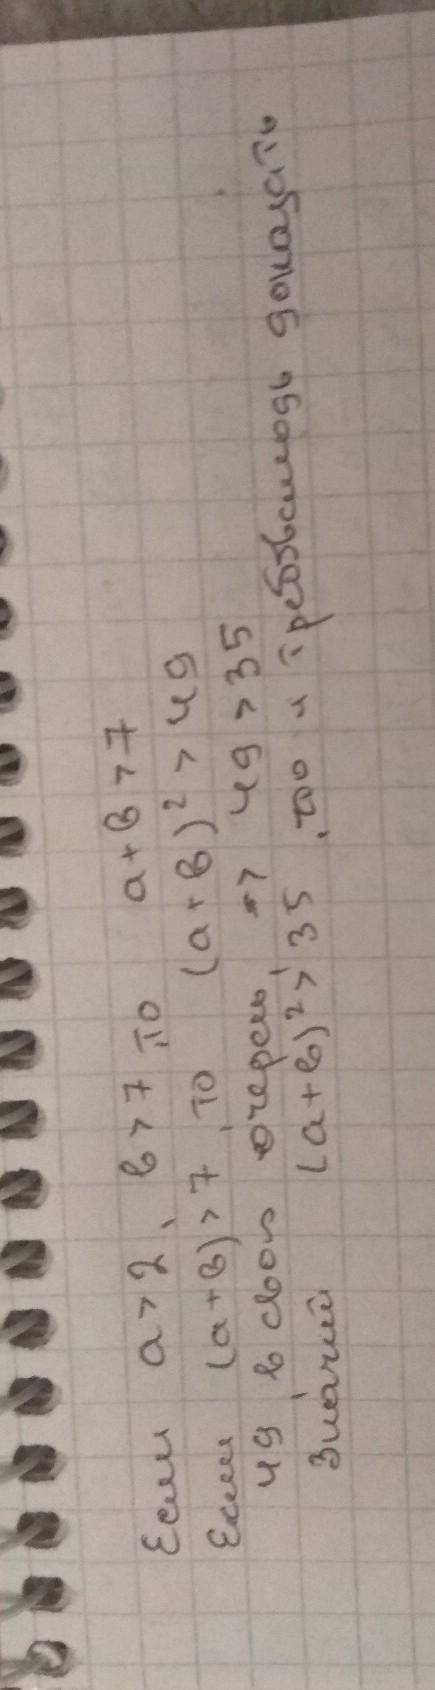 Если a > 2, в > 7 то a + в > 7
Если (a + в) > 7, то (a + в)² > 49
49 в свою очередь, => 49 > 35
Значит (a + в)² > 35, что и требовалось доказать